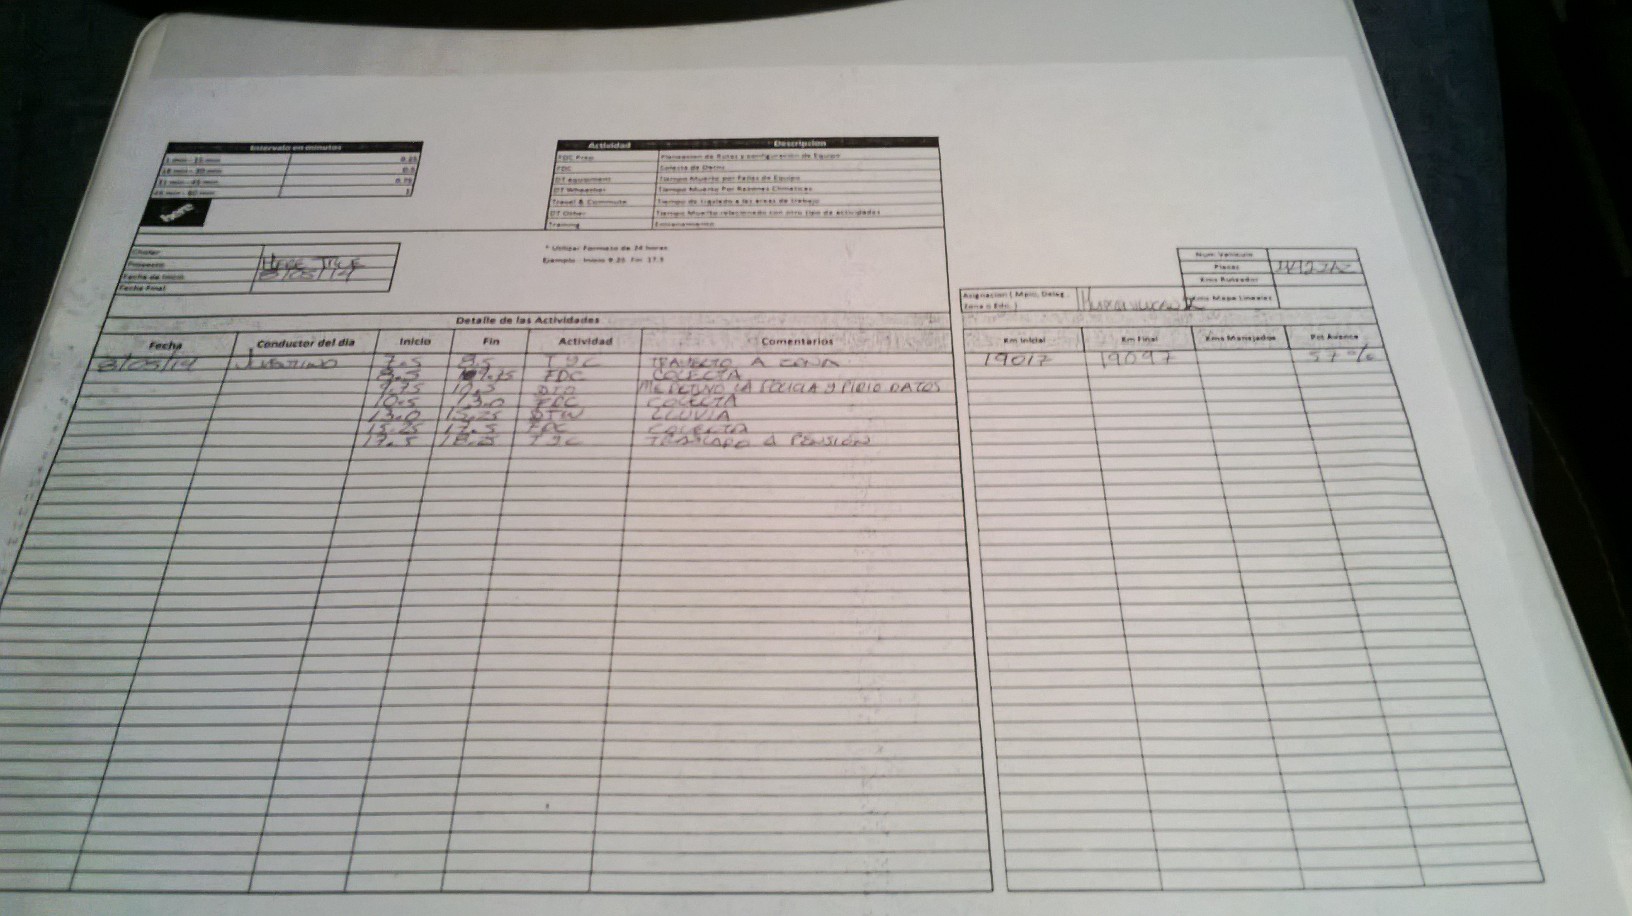 Intervalo en minutos
1 min - 15 min 0.25
16 min - 30 min 0.5
31 min - 45 min 0.75
46 min - 60 min 1
here
Actividad Descripcion
FDC Prep Planeacion de Rutas y configuración de Equipo
FDC Colecta de Datos
DT equipment Tiempo Muerto por Fallas de Equipo
DT Wheather Tiempo Muerto Por Razones Climaticas
Travel & Commute Tiempo de traslado a las areas de trabajo
DT Other Tiempo Muerto relacionado con otro tipo de actividades
Training Entrenamiento
* Utilizar Formato de 24 horas
Ejemplo: Inicio 9.25 Fin 17.5
Chofer
Proyecto HERE TRUE
Fecha de Inicio 8/05/14
Fecha Final
Num Vehiculo
Placas
Kms Ruteador
Kms Mapa Lineales
Asignacion ( Mpio, Deleg, Zona o Edo. )
Detalle de las Actividades
Fecha Conductor del dia Inicio Fin Actividad Comentarios Km Inicial Km Final Kms Manejados Pct Avance
8/05/14 JUSTINO 7.5 8.5 TYC TRAYECTO A ZONA 19017 19097 57%
8.5 9.75 FDC COLECTA
9.75 10.5 DTO ME DETUVO LA POLICIA Y PIDIO DATOS
10.5 13.0 FDC COLECTA
13.0 15.25 DTW LLUVIA
15.25 17.5 FDC COLECTA
17.5 TYC TRASLADO A PENSIÓN